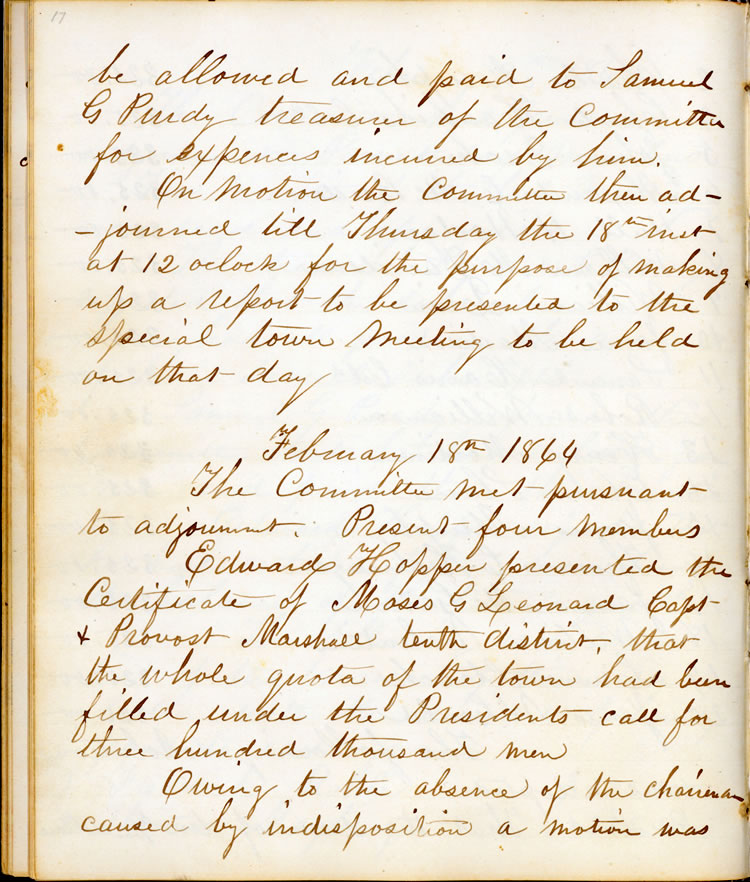 17
be allowed and paid to Samuel
G Purdy treasurer of the Committee
for expences incurred by him.
On motion the Committee then ad-
-journed till Thursday the 18th inst
at 12 oclock for the purpose of making
up a report to be presented to the
special town Meeting to be held
on that day
February 18th 1864
The Committee met pursuant
to adjournmt. Present four members
Edward Hopper presented the
Certificate of Moses G Leonard Capt
& Provost Marshall tenth district, that
the whole quota of the town had been
filled under the Presidents call for
three hundred thousand men
Owing to the absence of the chairman
caused by indisposition a motion was